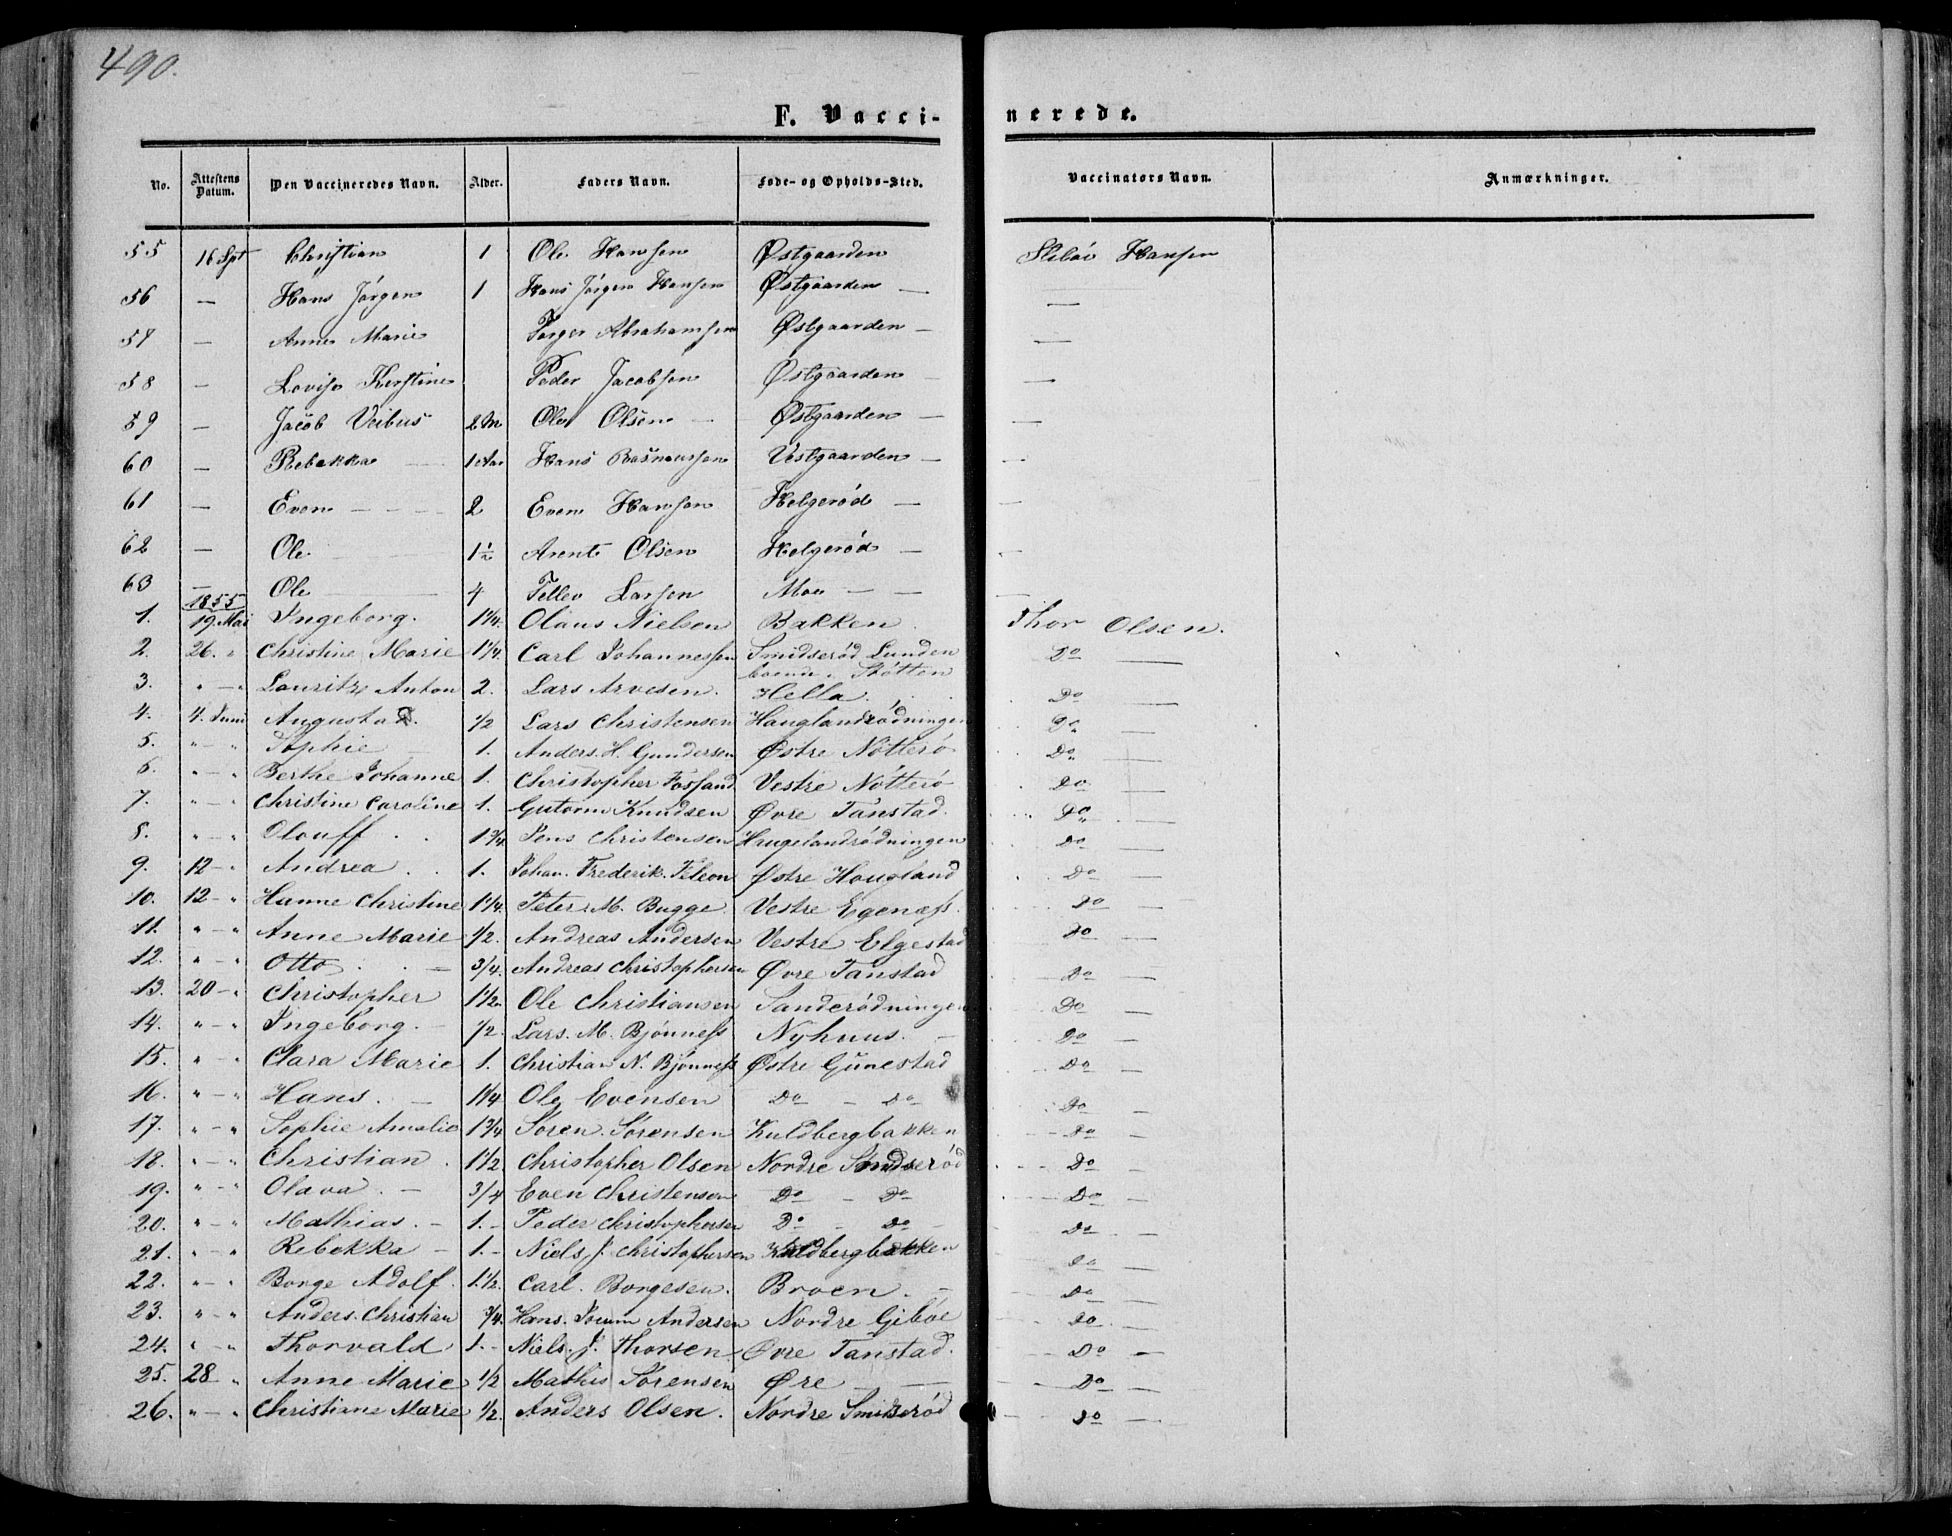 490.
F. Vacci-
nerede.
No. Attestens Datum. Den Vaccineredes Navn. Alder. Faders Navn. Føde- og Opholds-Sted. Vaccinators Navn. Anmærkninger.
55 16 Spt Christian 1 Ole Hansen Østgaarden Hansen
56 — Hans Jørgen 1 Hans Jørgen Hansen Østgaarden — —
57 — Anne Marie Torger Abrahamsen Østgaarden — —
58 — Lovise Kirstine Peder Jacobsen Østgaarden — —
59 — Jacob Veibus 2 M Ole Olsen — Østgaarden — —
60 — Rebekka — 1 Aar Hans Rasmussen Vestgaarden — —
61 — Even — — — 2 Even Hansen Holgerød — —
62 — Ole — 1½ Arent Olsen Holgerød — —
63 — Ole — 4 Tellev Larsen Moe — — —
1855
1. 19 Mai Ingeborg. 1 1/4. Olaus Nielsen Bakken. Thor Olsen.
2. 26. " Christine Marie 1 1/4. Carl Johannessen Smidserød Lunden Do —
3. " — " Lauritz Anton 2. Lars Arvesen. Hella. Do —
4. 4. Juni Augusta 1/2 Lars Christensen Hauglandrødningen Do —
5. " — " Sophie — 1. Anders. H. Gundersen Østre Nøtterø Do —
6. " — " Berthe Johanne 1. Christopher Fossand Vestre Nøtterø Do —
7. " — " Christine Caroline 1. Gutorm Knudsen Øvre Tanstad. Do —
8. " — " Olouff. 1 3/4. Jens Christensen Haugelandrødningen Do —
9. 12 — " Andrea. 1. Johan. Frederik. Feleon Østre Hougland Do —
10. 12 — " Hanne Christine 1 1/4. Peter M. Bugge. Vestre Egenæss. Do —
11. " — " Anne Marie 1/2. Andreas Andersen Vestre Elgestad Do —
12. " — " Otto. — 3/4. Andreas Christophersen Øvre Tanstad Do —
13. 20 — " Christopher 1 1/2 Ole Christiansen Sanderødningen Do —
14. " — " Ingeborg. — 1/2. Lars. M. Bjønness Nyhuus. — Do —
15. " — " Clara Marie 1. Christian N. Bjønness Østre Gunestad Do —
16. " — " Hans. — 1 1/4 Ole Evensen Do — Do Do —
17. " — " Sophie Amalie 1 3/4 Søren. Sørensen Kuldbergbakken Do —
18. " — " Christian. 1 1/2 Christopher Olsen Nordre Smidserød Do —
19. " — " Olava. — 3/4 Even Christensen Do — Do Do —
20. " — " Mathias. — 1. — Peder Christophersen Do — Do — Do —
21. " — " Rebekka — 1. — Niels J. Christophersen Kuldbergbakken Do —
22. " — " Borge Adolf. 1 1/2. Carl. Borgesen. Broen. — Do —
23. " — " Anders. Christian 3/4. Hans. Joeum Andersen Nordre Gibøe Do —
24. " — " Thorvald 1. — Niels. J. Thorsen Øvre Tanstad. Do —
25. 28 " Anne Marie 1/2 Mathis Sørensen Øre — — Do —
26. " — " Christiane Marie 1/2. Anders Olsen. Nordre Smidserød Do —